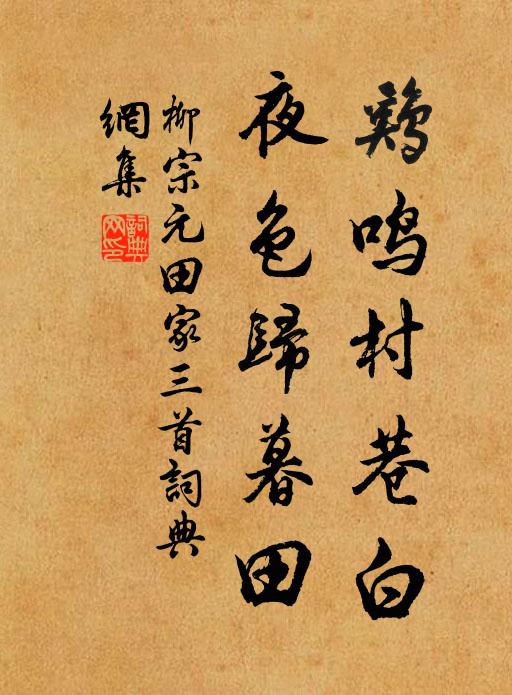 鷄鸣村巷白
夜色歸暮田
柳宗元田家三首詞典
網集
詞典网印